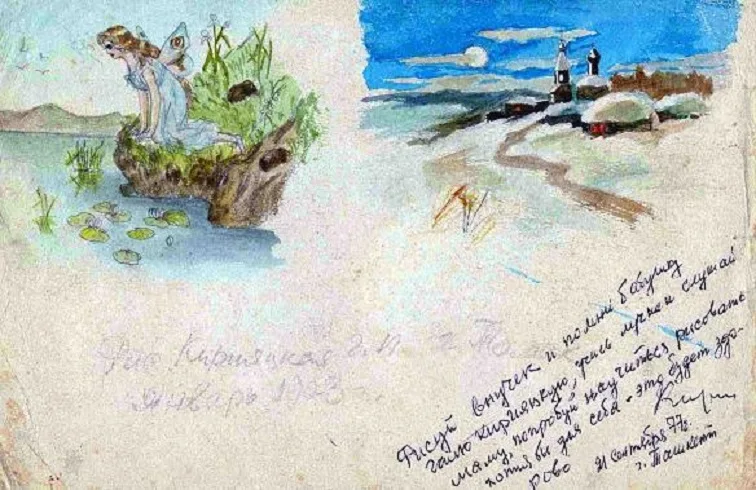 Рис Киргияцкая г.н. г. Таш
январь 1973
Рисуй внучек и помни бабушку
галю Киргияцкую, учись лучше и слушай
маму, попробуй научиться рисовать
хотя бы для себя - это будет здо-
рово 21 сентября 77г.
г. Ташкент